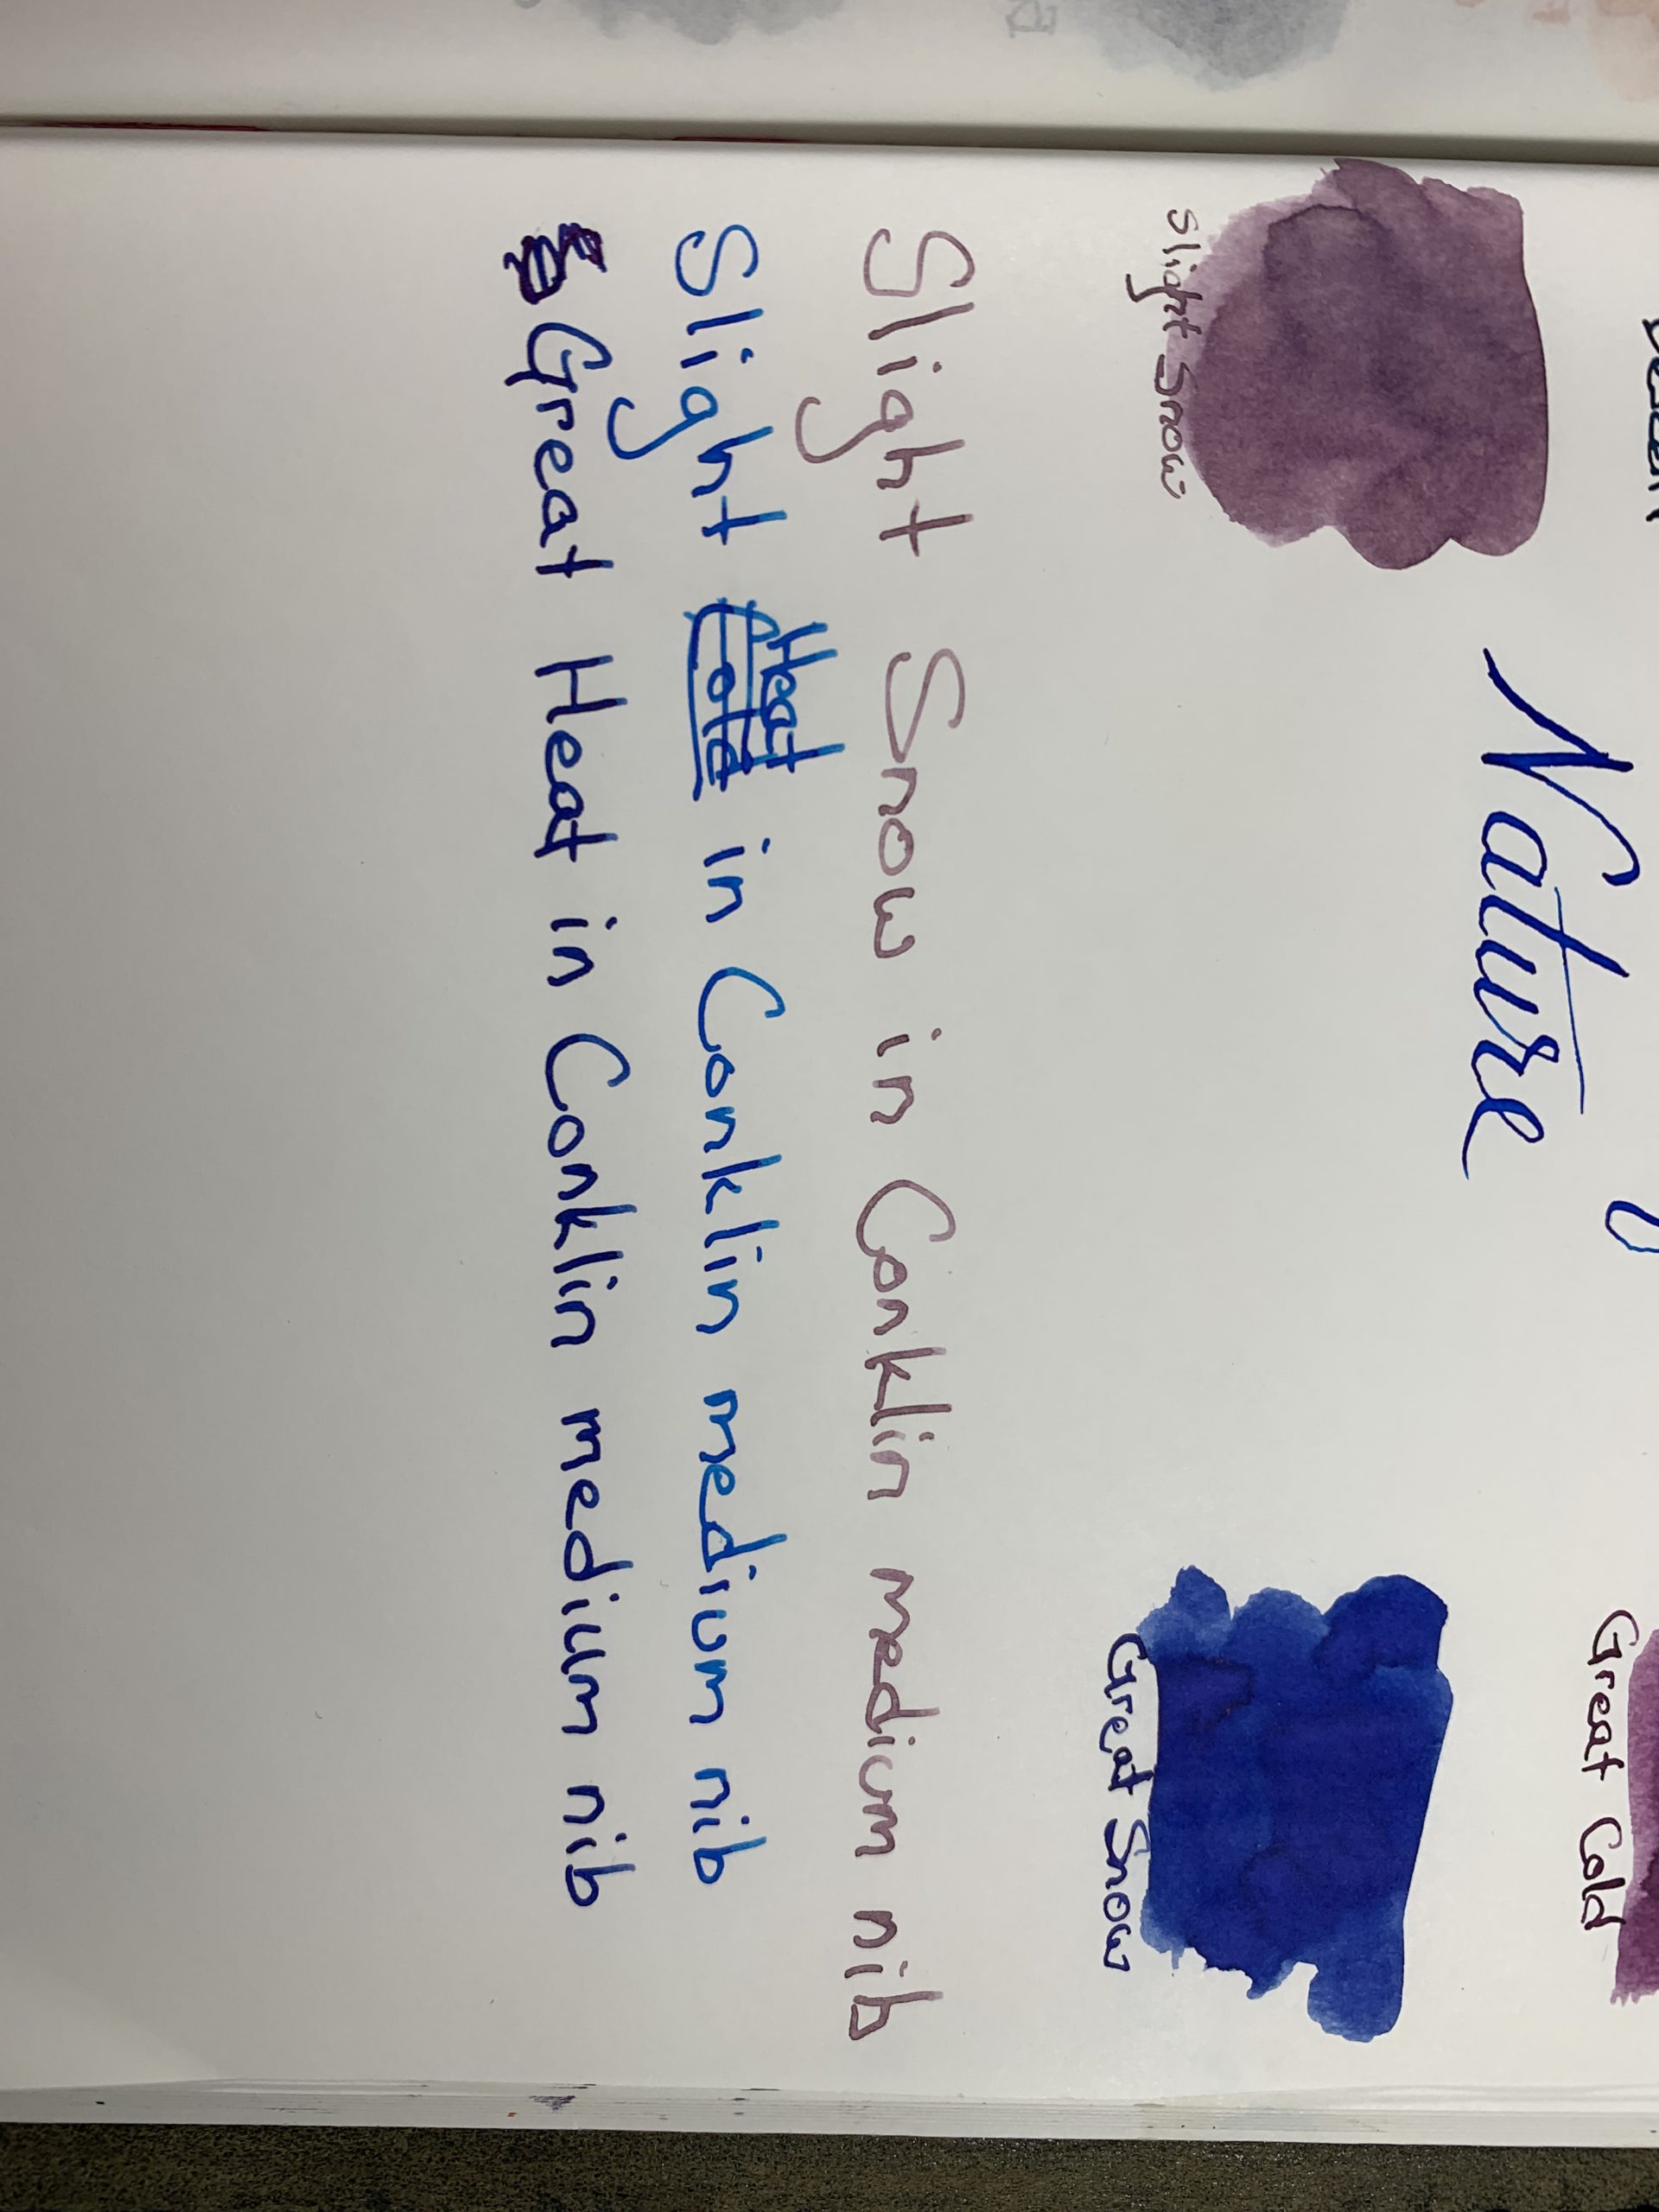 Great Cold
Nature
Slight Snow
Great Snow
Slight Snow in Conklin medium nib
Heat
Slight Cold in Conklin medium nib
Great Heat in Conklin medium nib